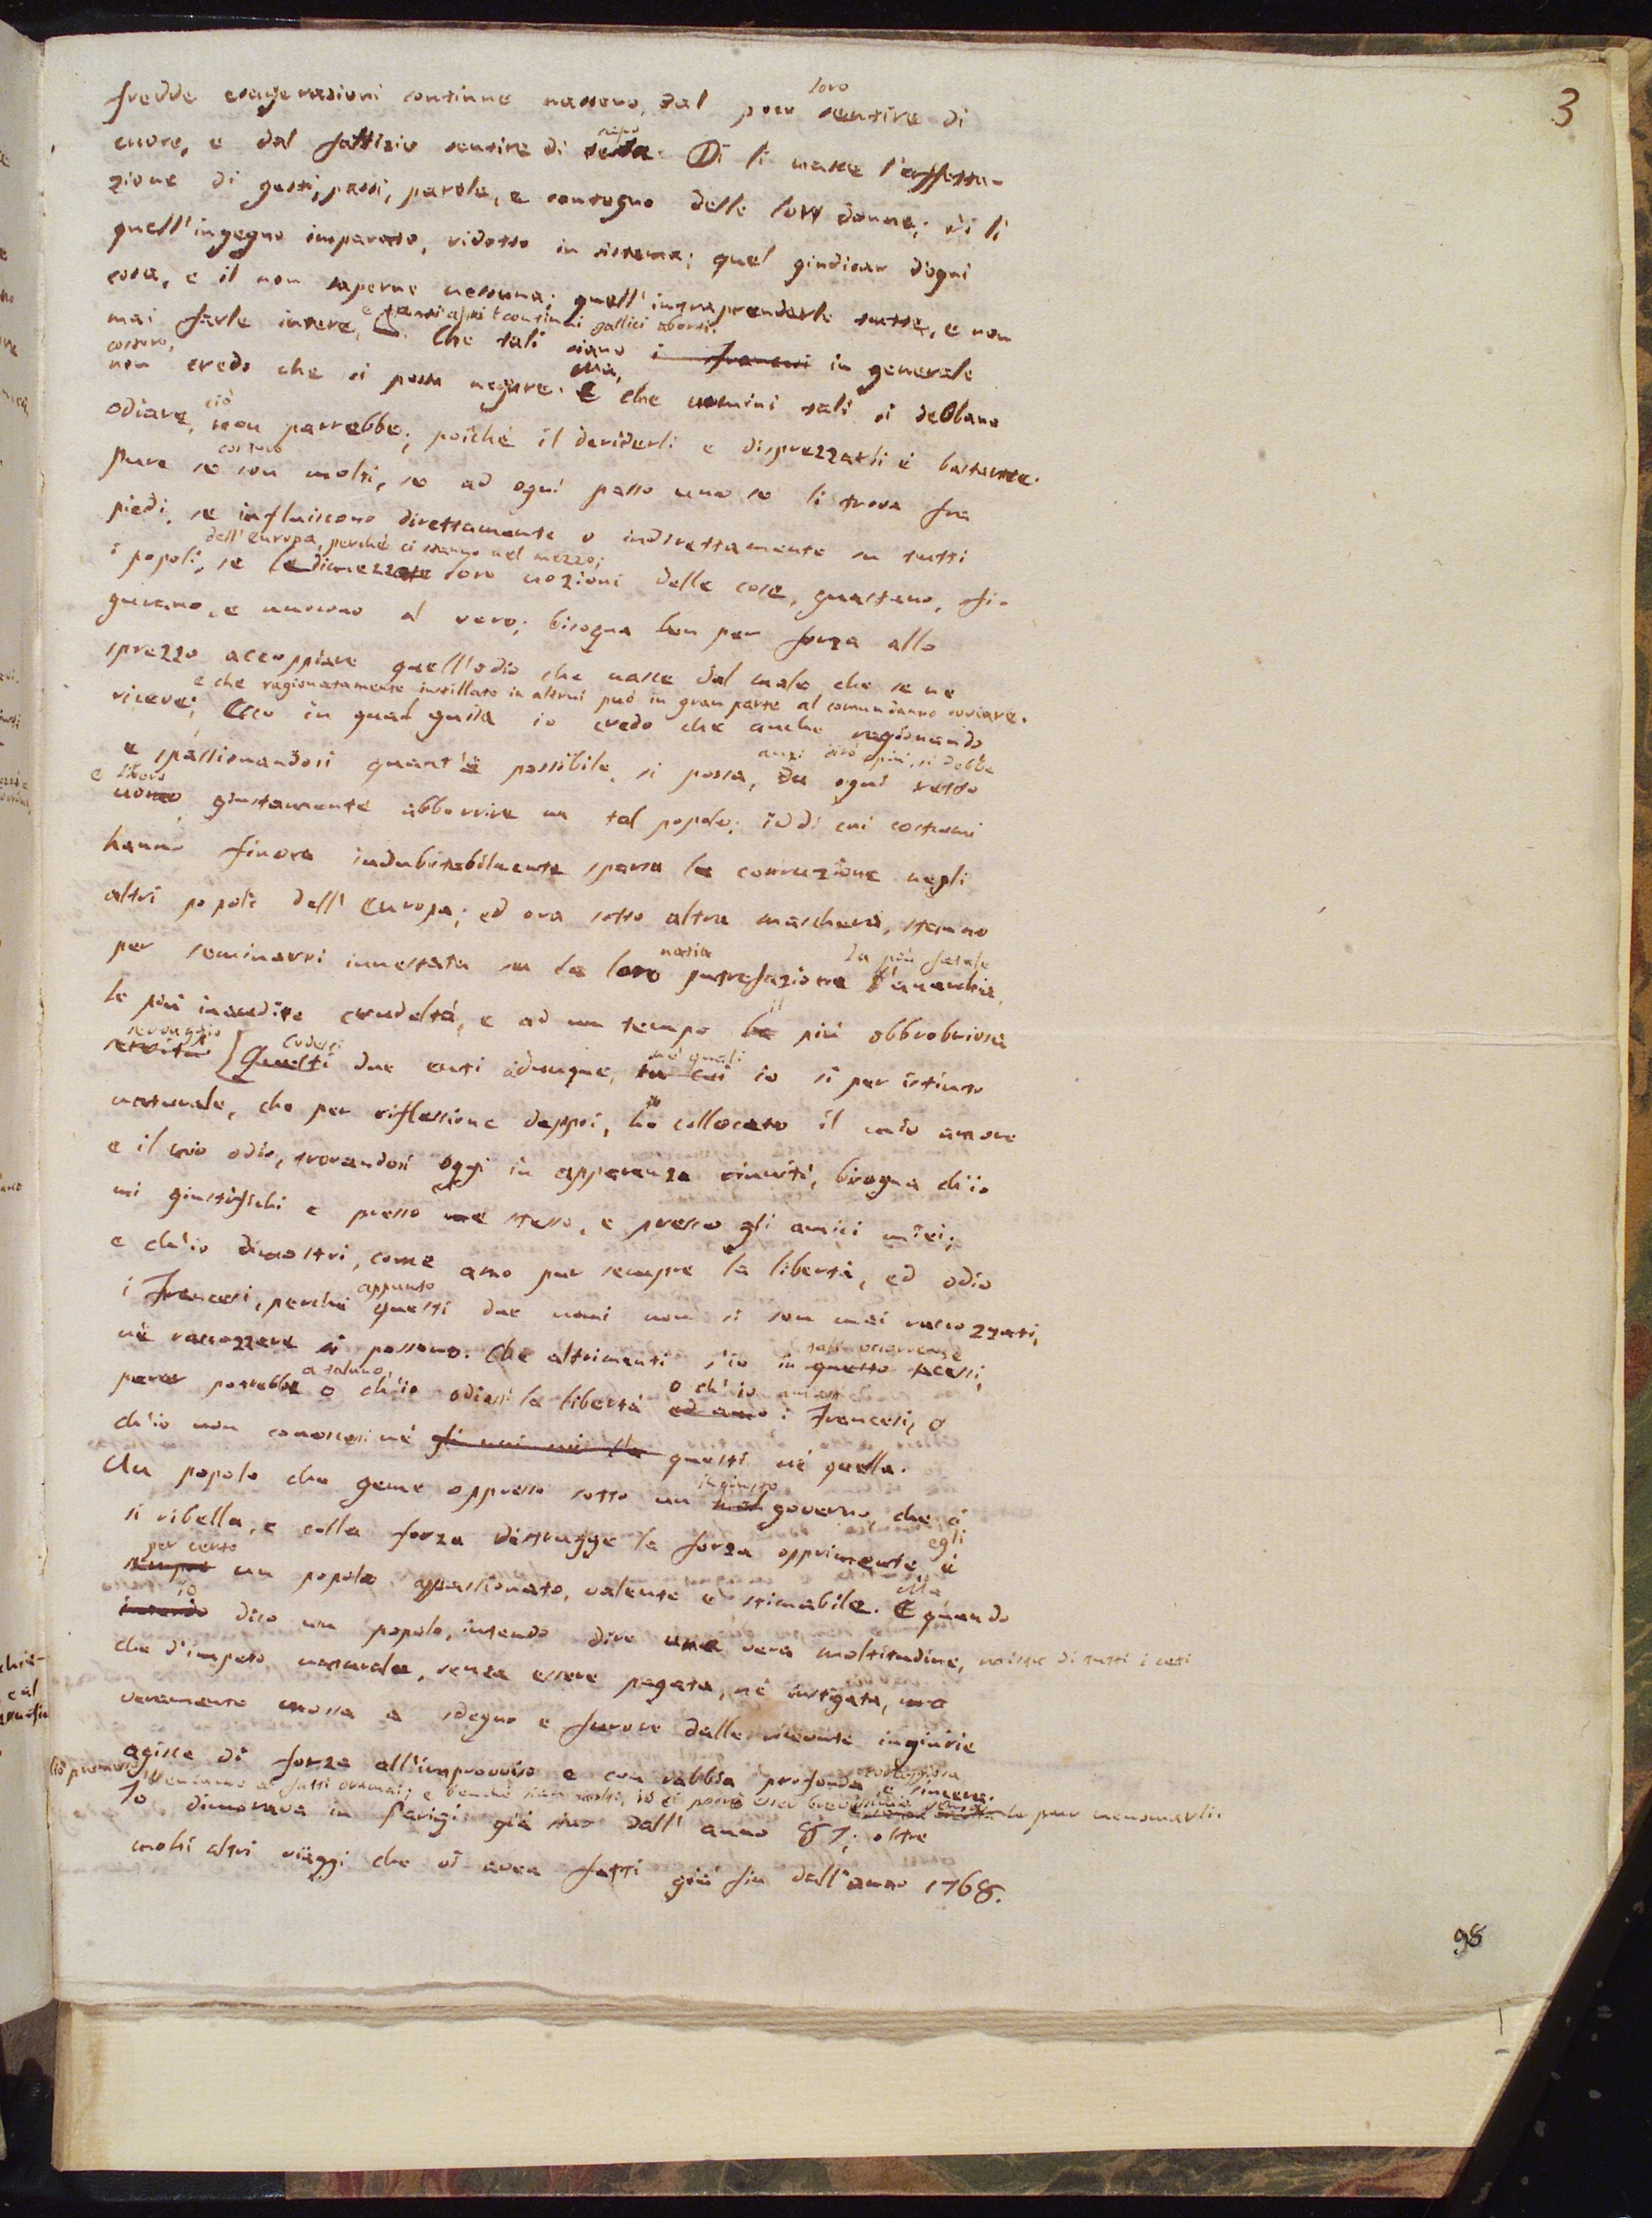 3
loro
fredde esagerazioni continue nascono, dal poco sentire di
capo
cuore, e dal fattizio sentire di testa. Di lì nasce l'affetta-
zione di gesti, passi, parole, e contegno delle loro donne; di lì
quell'ingegno imparato, ridotto in sistema; quel giudicar d'ogni
cosa, e il non saperne nessuna; quell'intraprenderle tutte, e non
e tanti altri continui gallici aborti.
mai farle intere, Che tali siano i Francesi in generale
costoro, Ma,
non credo che si possa negare. E che uomini tali si debbano
ciò
odiare, non parrebbe; poiché il deriderli e disprezzarli è bastante.
costoro
Pure se son molti, se ad ogni passo uno se li trova fra
piedi, se influiscono direttamente o indirettamente su tutti
dell'Europa, perché ci stanno nel mezzo;
i popoli, se le dimezzate loro nozioni delle cose, guastano, sfi-
gurano, e nuocono al vero; bisogna ben per forza allo
sprezzo accoppiare quell'odio che nasce dal male, che se ne
e che ragionatamente instillato in altrui può in gran parte al comun danno ovviare.
riceve; Ecco in qual guisa io credo che anche ragionando
anzi dirò più, si debba
e spassionandosi quant'è possibile, si possa, da ogni retto
e libero
uomo, giustamente abborrire un tal popolo; i di cui costumi
hanno finora indubitabilmente sparsa la corruzione negli
altri popoli dell'Europa; ed ora sotto altra maschera, stanno
natia la più fatale
per seminarvi innestata su la loro putrefazione l'anarchia,
il
le più inaudite crudeltà, e ad un tempo la più obbrobriosa
servaggio Codesti né quali
servitù [Questi due enti adunque, in cui io sì per istinto
naturale, che per riflessione dappoi, ho collocato il mio amore
e il mio odio, trovandosi oggi in apparenza riuniti, bisogna ch'io
mi giustifichi e presso me stesso, e presso gli amici miei;
e ch'io dimostri, come amo pur sempre la libertà, ed odio
appunto
i Francesi, perché questi due nomi non si son mai raccozzati,
tali occorrenze
né raccozzare si possono. Che altrimenti s'io in questo tacessi,
a taluno o ch'io amassi
parer potrebbe o ch'io odiassi la libertà ed amo i Francesi, o
ch'io non conoscessi né questi né quella.
ingiusto
Un popolo che geme oppresso sotto un mal governo, che
egli
si ribella, e colla forza distrugge la forza opprimente, è
per certo
sempre un popolo appassionato, valente e stimabile. E quando
io Ma
intendo dico un popolo, intendo dire una vera moltitudine, mista di tutti i ceti
che d'impeto naturale, senza essere pagata, né instigata, ma
veramente mossa a sdegno e furore dalle ricevute ingiurie
coraggiosa
agisce di forza all'improvviso e con rabbia profonda e sincera.
Veniamo ai fatti oramai; e benché sian molti, io ci potrò esser breve senza pur menomarli.
Io dimorava in Parigi già sino dall'anno 87; oltre
molti altri viaggi che vi avea fatti già fin dall'anno 1768.
98